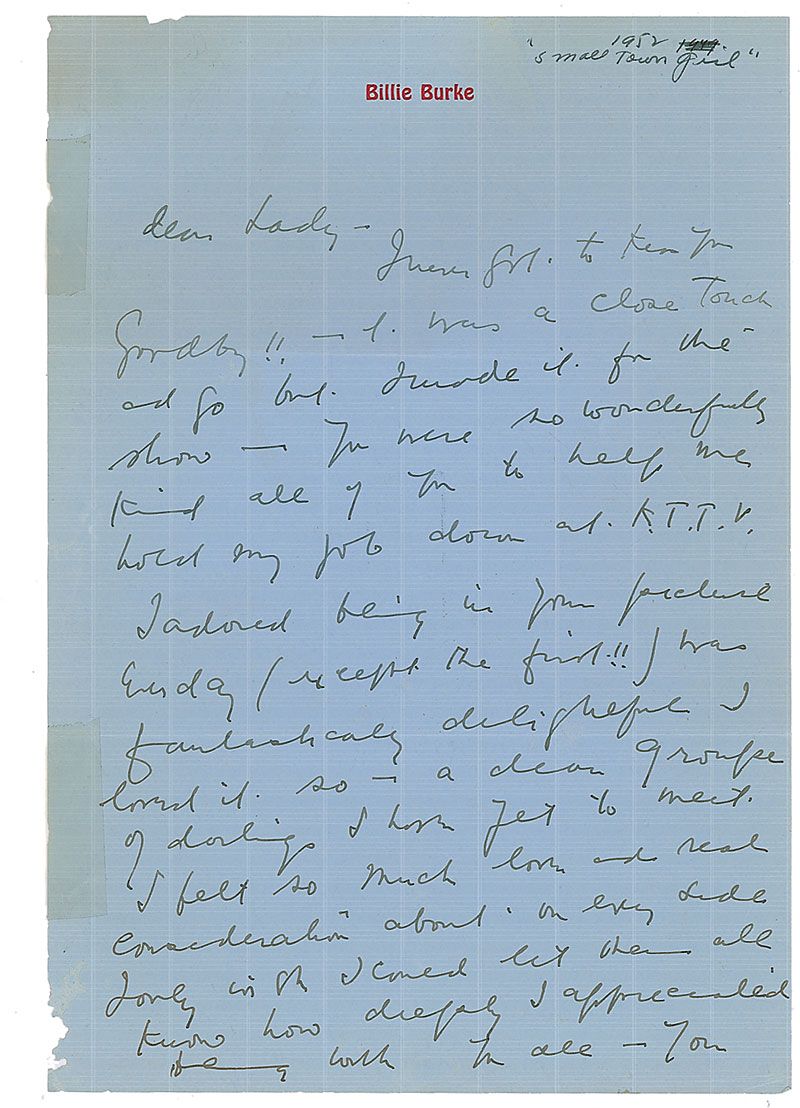 1952 1949.
"Small Town Girl"
Billie Burke
dear Lady –
I never got. to kiss you
Goodby!! – I. was a close Touch
ad go but. I made it. for the
show – You were so wonderfully
kind all of you to help me
hold my job down at. K.T.T.V.
I adored being in your picture
Everday (except the first!!) was
fantastically delightful I
loved it. so – a dear Groupe
of darlings I have yet to meet.
I felt so much love and real
consideration about. on every side
I only wish I could let them all
know how deeply I appreciated
being with you all – You